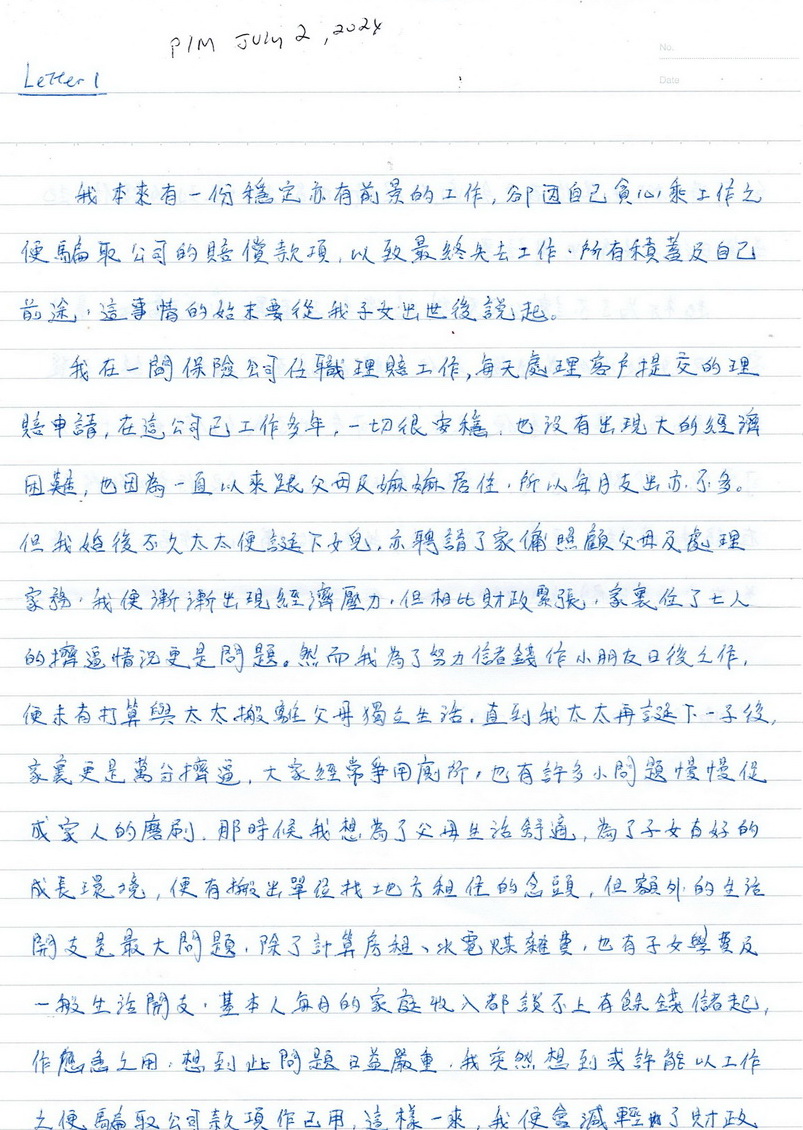 P/M July 2, 2024
No.
Letter 1
Date
我本來有一份穩定亦有前景的工作, 卻因自己貪心乘工作之
便騙取公司的賠償款項, 以致最終失去工作、所有積蓄及自己
前途, 這事情的始末要從我子女出世後說起。
我在一間保險公司任職理賠工作, 每天處理客戶提交的理
賠申請, 在這公司已工作多年, 一切很安穩, 也沒有出現大的經濟
困難, 也因為一直以來跟父母及嫲嫲居住, 所以每月支出亦不多。
但我婚後不久太太便誕下女兒, 亦聘請了家傭照顧父母及處理
家務, 我便漸漸出現經濟壓力, 但相比財政緊張, 家裏住了七人
的擠逼情況更是問題。然而我為了努力儲錢作小朋友日後之作,
便未有打算與太太搬離父母獨立生活, 直到我太太再誕下一子後,
家裏更是萬分擠逼, 大家經常爭用廁所, 也有許多小問題慢慢促
成家人的磨刷, 那時候我想為了父母生活舒適, 為了子女有好的
成長環境, 便有搬出單位找地方租住的念頭, 但額外的生活
開支是最大問題, 除了計算房租、水電煤雜費, 也有子女學費及
一般生活開支, 基本人每月的家庭收入都談不上有餘錢儲起,
作應急之用, 想到此問題日益嚴重, 我突然想到或許能以工作
之便騙取公司款項作己用, 這樣一來, 我便會減輕了財政